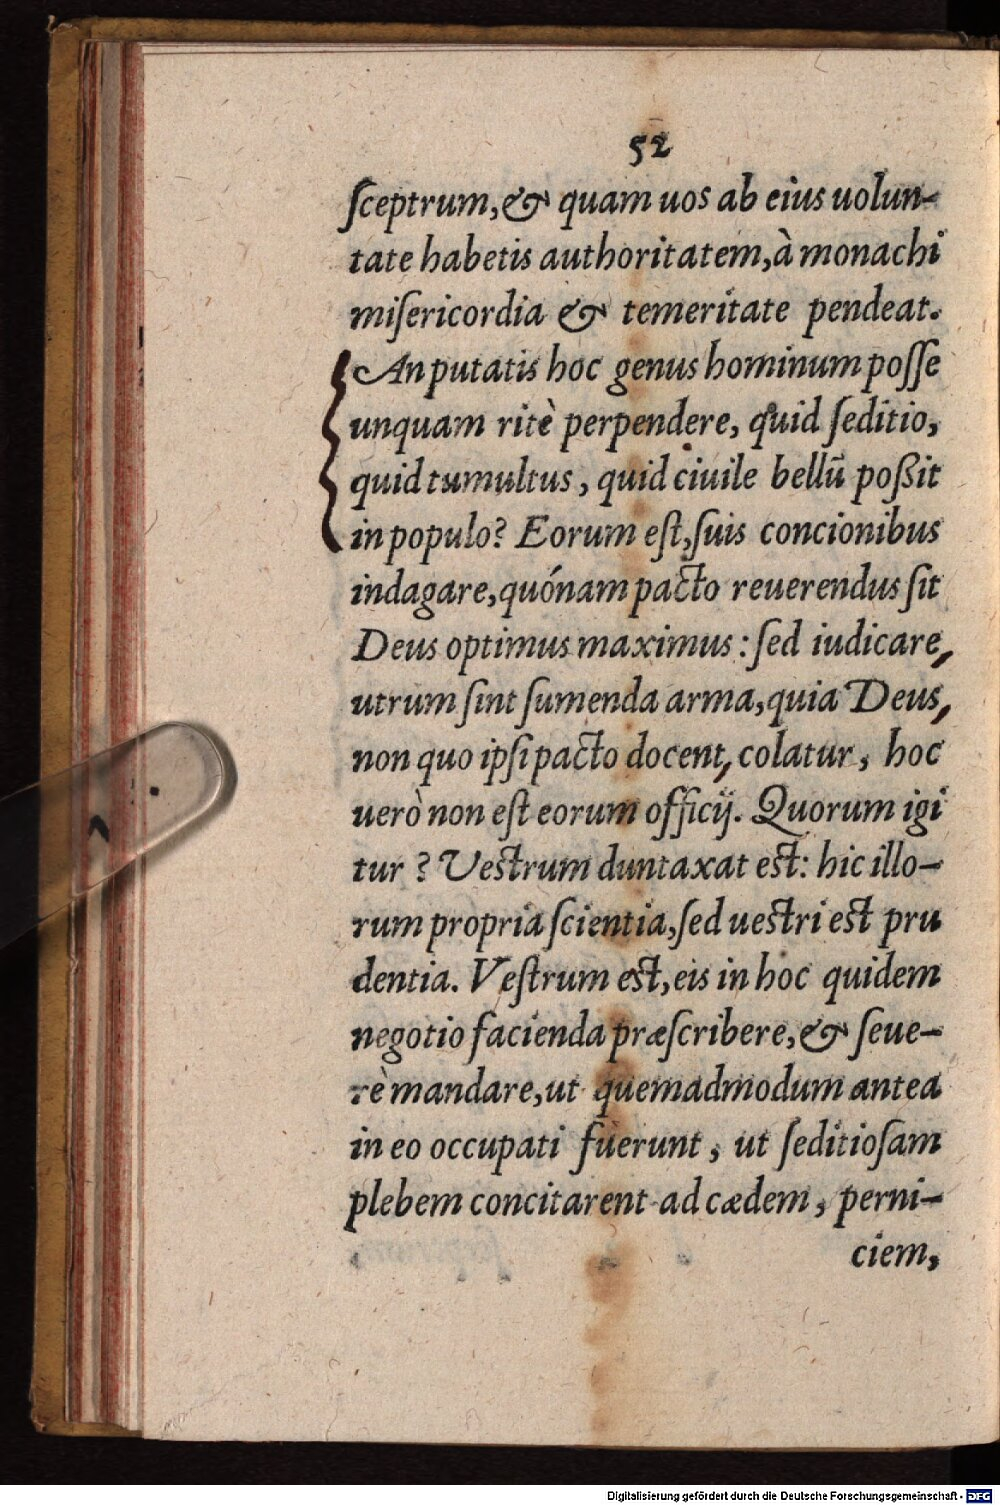 52
ſceptrum, & quam uos ab eius uolun-
tate habetis authoritatem, à monachi
miſericordia & temeritate pendeat.
An putatis hoc genus hominum poſſe
unquam ritè perpendere, quid ſeditio,
quid tumultus, quid ciuile bellū poßit
in populo? Eorum eſt, ſuis concionibus
indagare, quónam pacto reuerendus ſit
Deus optimus maximus: ſed iudicare,
utrum ſint ſumenda arma, quia Deus,
non quo ipſi pacto docent, colatur, hoc
uerò non eſt eorum officij. Quorum igi
tur? Veſtrum duntaxat eſt: hic illo-
rum propria ſcientia, ſed ueſtri eſt pru
dentia. Veſtrum eſt, eis in hoc quidem
negotio facienda præſcribere, & ſeue-
rè mandare, ut quemadmodum antea
in eo occupati fuerunt, ut ſeditioſam
plebem concitarent ad cædem, perni-
ciem,
Digitalisierung gefördert durch die Deutsche Forschungsgemeinschaft - DFG